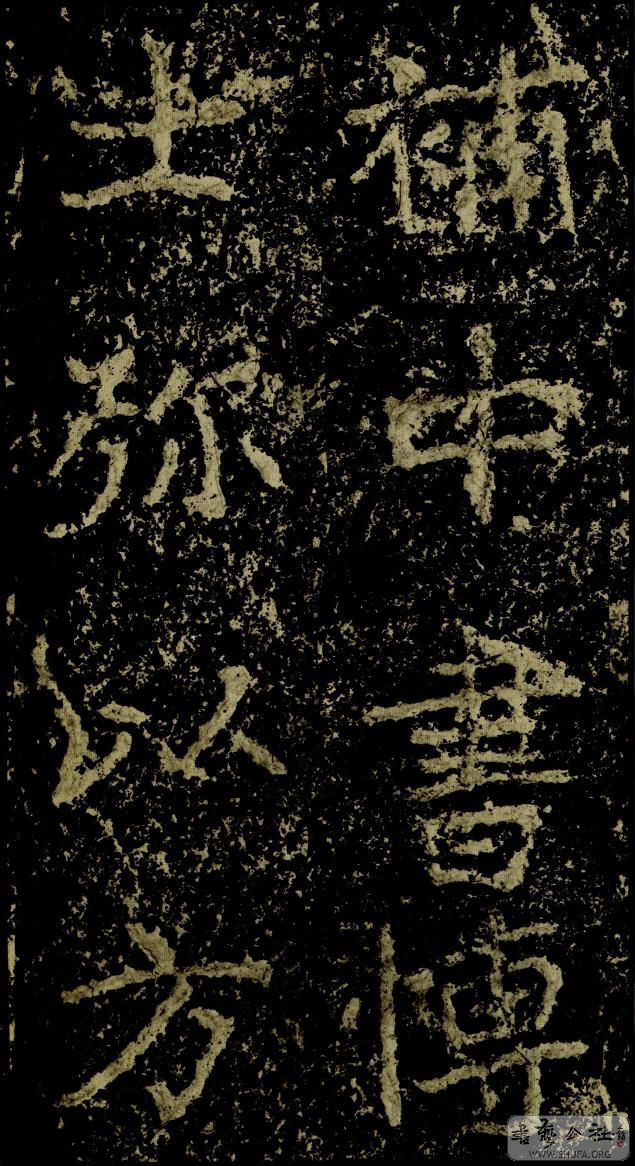 補中書博
士弥以方
書藝公社
WWW.SHUFA.ORG